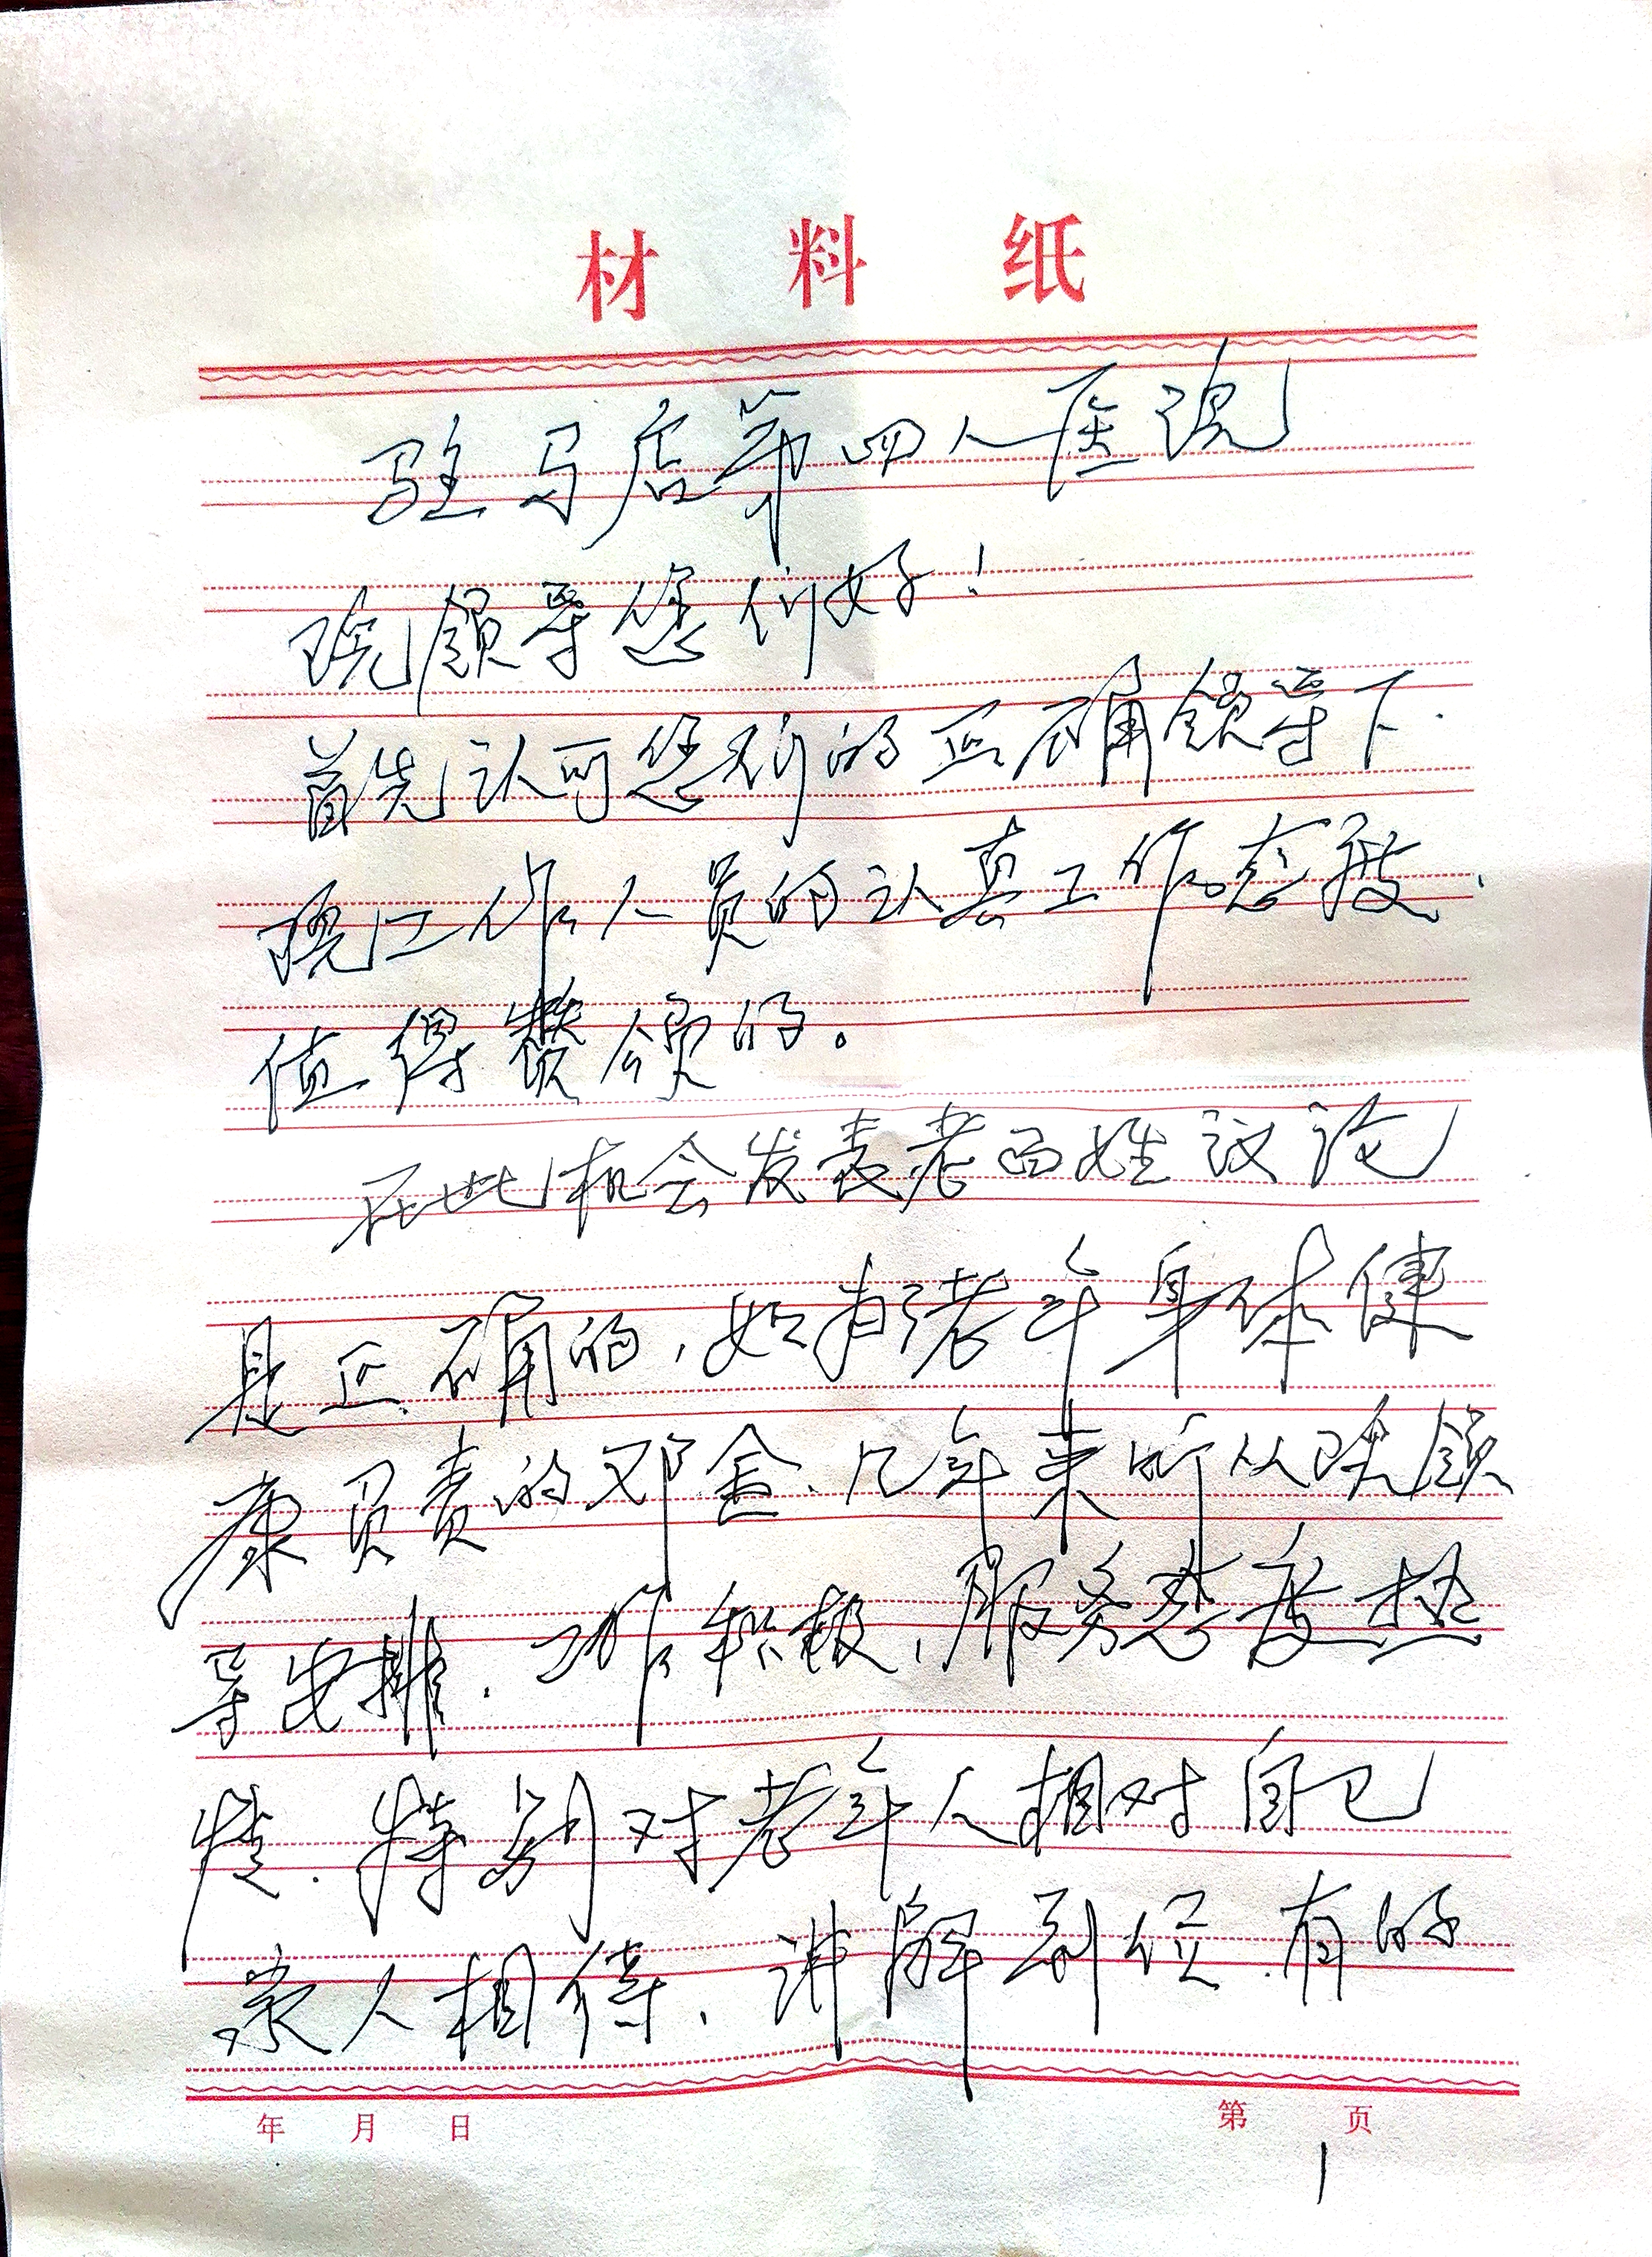 材料纸
驻马店第四人医院
院领导您们好！
首先认可您们的正确领导下.
院工作人员的认真工作态度、
值得赞颂的。
在此机会发表老百姓议论
是正确的，如有老年身体健
康负责的邓金、几年来听从院领
导安排.工作积极，服务态度热
情.特别对老年人相对自己
亲人相待、讲解到位.有的
年 月 日 第 页
1